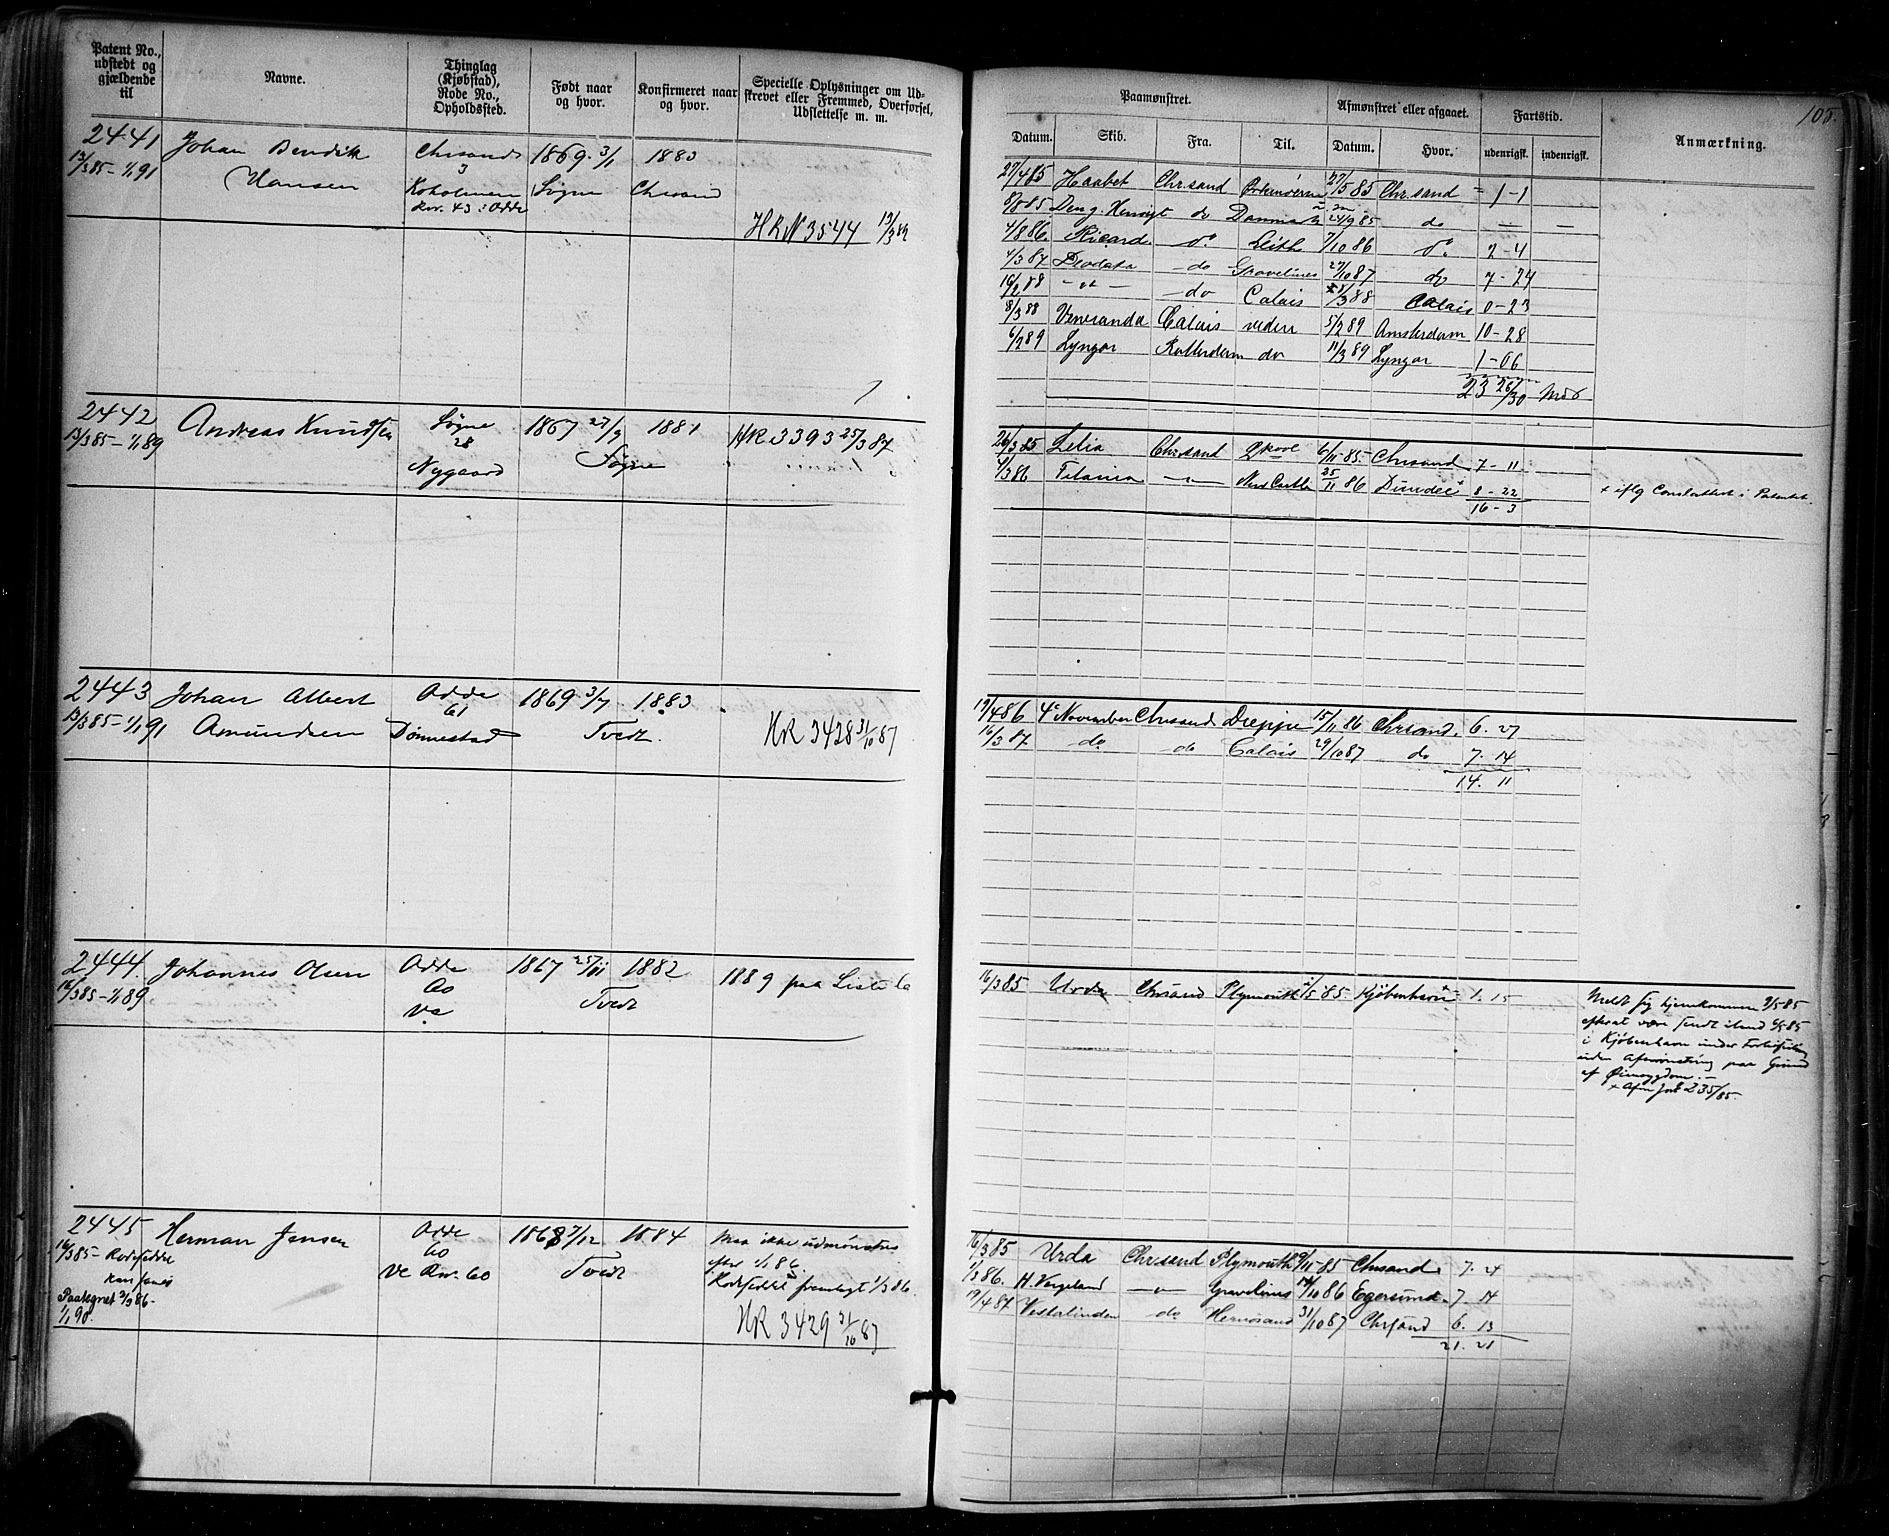 Patent No., udstedt og gjældende til
Navne.
Thinglag (Kjøbstad), Rode No., Opholdssted.
Født naar og hvor.
Konfirmeret naar og hvor.
Specielle Oplysninger om Udskrevet eller Fremmed, Overførsel, Udslettelse m. m.
2441
13/3 85 – 1/1 91
Johan Bendik
Hansen
Chrsand
3
Koholmen
Rv. 43 : Odde
1869 3/1
Søgne
1883
Chrsand
HR N 3544
2442
13/3 85 – 1/1 89
Andreas Knudsen
Søgne
28
Nygaard
1867 27/9
Søgne
1881
HR 3393 25/3 87
2443
13/3 85 – 1/1 91
Johan Albert
Amundsen
Odde
61
Dønnestad
1869 3/7
Tvedt
1883
HR 3428 31/10 87
2444
16/3 85 – 1/1 89
Johannes Olsen
Odde
60
Ve
1867 25/11
Tvedt
1882
1889 paa Liste
2445
16/3 85 –
Paategnet 2/3 86 –
1/1 90.
Herman Jensen
Odde
60
Ve Rv. 60
1868 7/12
Tvedt
1884
Maa ikke udmønstres
efter 1/1 86
Rodeseddel fremlagt 1/3 86.
HR 3429 31/10 87
105.
Paamønstret.
Afmønstret eller afgaaet.
Fartstid.
Anmærkning.
Datum.
Skib.
Fra.
Til.
Datum.
Hvor.
udenrigsk.
indenrigsk.
27/4 85 Haabet Chr.sand 27/5 85 Chr.sand 1 – 1
8/8 85 do Danmark 24/9 85 do – –
4/8 86. Ricard do Leith 7/10 86 do 2 – 4
4/3 87 Deodata – do Gravelines 27/10 87 do 7 – 24
16/2 88 – " – – do Calais 8/3 88 Calais 0 – 23
8/3 88 Veneranda Calais videre 5/2 89 Amsterdam 10 – 28
6/2 89 Lyngør Rotterdam do 11/3 89 Lyngør 1 – 06
23 26/30
26/3 85 Lelia Chr.sand 6/11 85. Chrsand 7 – 11
4/3 86 Titania – " – New Castle 25/11 86 Dundee + 8 – 22
16 – 3
+ iflg
19/4 86 4e November Chrsand Dieppe 15/11 86 Chrsand. 6. 27
16/3 87 do do Calais 29/10 87 do 7. 14
14. 11
16/3 85 Urda Chrsand Plymouth 1/5 85. Kjøbenhavn 1. 15
Meldt sig hjemkommen 9/5 85
efterat være sendt iland 6/5 85
i Kjøbenhavn under
uden Afmønstring paa Grund
af Øiensygdom. –
235/85.
16/3 85 Urda Chrsand Plymouth 9/11 85 Chrsand. 7. 24
1/3 86. H. Vergeland – " – Gravelines 14/10 86 Egersund. 7. 14
19/4 87 Vesterlinden do Hernøsand 31/10 87 Chrsand 6. 13
21. 21